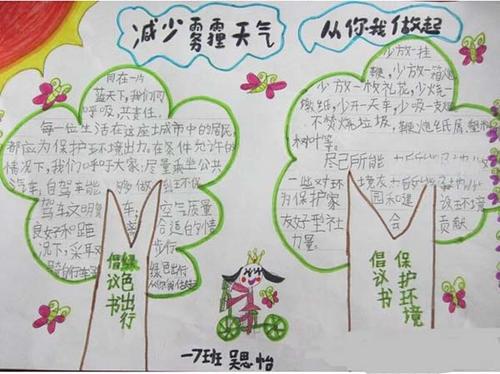 减少雾霾天气
从你我做起
同在一片
蓝天下,我们同
呼吸,共责任。
每一位生活在这座城市中的居民,
都应为保护环境出力。在条件允许的
情况下,我们呼吁大家:尽量乘坐公共
汽车,自驾车能
驾车文明
车;空气质量
良好和距
合适的情
况下,采
步行
骑自行车
绿色出行
从你我做起
绿色出行
倡议书
少放一挂
鞭,少放一箱炮
少放一枚礼花,少烧一
纸,少开一天车,少吸一支烟
不焚烧垃圾,鞭炮纸屑,塑
树叶等。
尽己所能
一些对环
境友
为保护家
园和建
设环境
友好型社
会
贡献
力量。
保护环境
倡议书
一7班 吴思怡